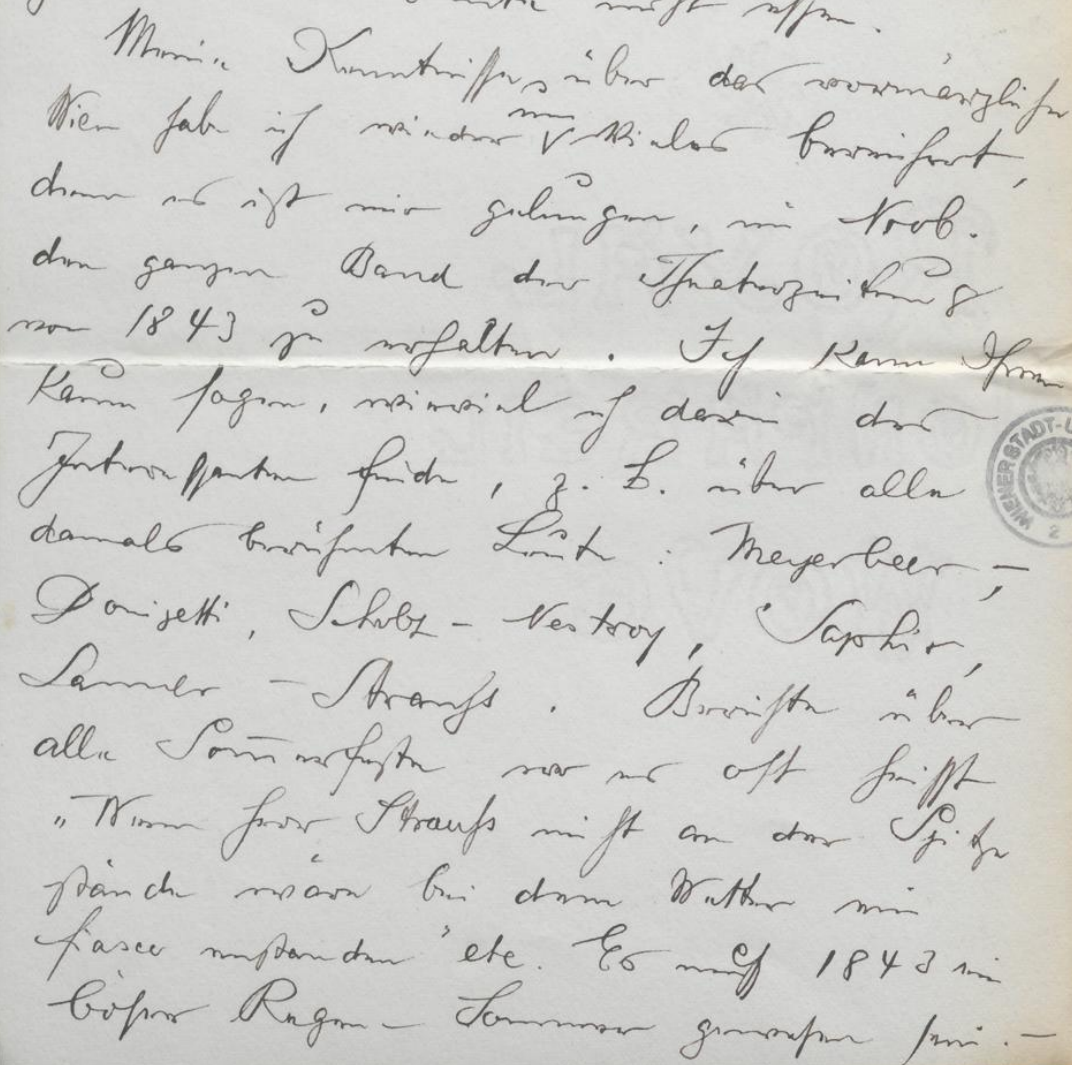 nicht essen.
Meine Kenntnisse über das vormärzliche
Wien habe ich wieder um Vieles bereichert,
denn es ist mir gelungen, im
den ganzen Band der Theaterzeitung
von 1843 zu erhalten. Ich kann Ihnen
kaum sagen, wieviel ich darin des
Interessanten finde, z. B. über alle
damals berühmten Leute: Meyerbeer –,
Donizetti, Scholz – Nestroy, Saphir,
Lanner – Strauss. Berichte über
alle Som̅erfeste wo es oft heisst
„Wenn Herr Strauss nicht an der Spitze
stände wäre bei dem Wetter ein
fiasco entstanden" etc. Es muß 1843 ein
böser Regen – Sommer gewesen sein. –
WIENER STADT-U
2